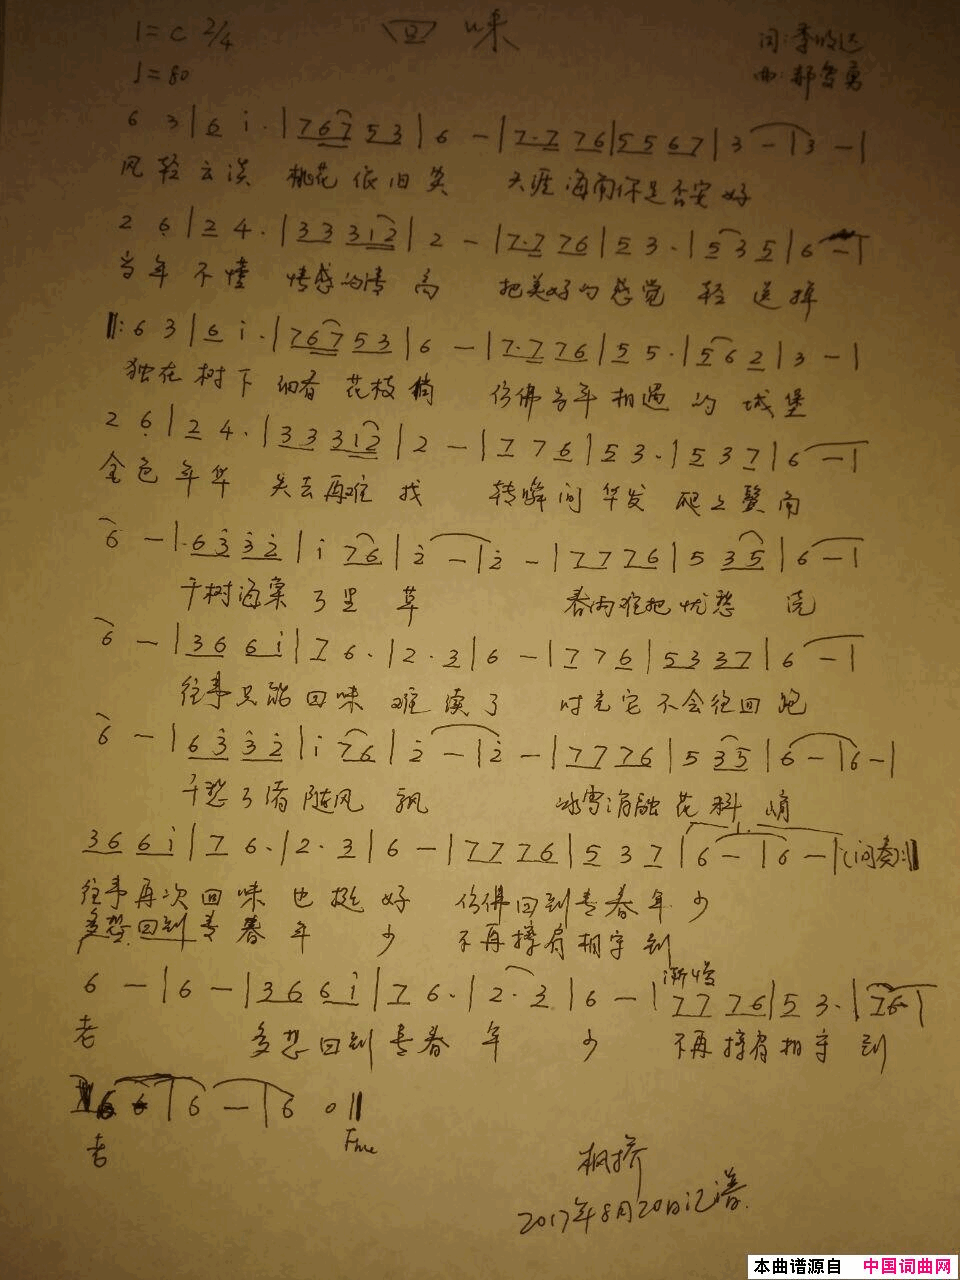 1=C 2/4 回味 词:李
♩=80 曲:郝 勇
6 3 | 6 i· | 7 6 7 5 3 | 6 - | 7·7 7 6 | 5 5 6 7 | 3 - | 3 - |
风轻云淡 桃花依旧笑 天涯海南你是否安好
2 6 | 2 4· | 3 3 3 1 2 | 2 - | 7·7 7 6 | 5 3· | 5 3 5 | 6 - |
当年不懂 情感的清高 把美好的感觉 轻送掉
‖: 6 3 | 6 i· | 7 6 7 5 3 | 6 - | 7·7 7 6 | 5 5· | 5 6 2 | 3 - |
独在树下 细看花枝俏 仿佛当年相遇的城堡
2 6 | 2 4· | 3 3 3 1 2 | 2 - | 7 7 6 | 5 3· | 5 3 7 | 6 - |
金色年华 失去再难找 转瞬间华发爬上鬓角
6 - | 6 3 3 2 | i 7 6 | 2 - | 2 - | 7 7 7 6 | 5 3 5 | 6 - |
千树海棠 了 草 春雨难把忧愁浇
6 - | 3 6 6 i | 7 6· | 2·3 | 6 - | 7 7 6 | 5 3 3 7 | 6 - |
往事只能回味难续了 时光它不会往回跑
6 - | 6 3 3 2 | i 7 6 | 2 - | 2 - | 7 7 7 6 | 5 3 5 | 6 - | 6 - |
千愁 随风飘 冰雪消融花料峭
3 6 6 i | 7 6· | 2·3 | 6 - | 7 7 7 6 | 5 3 7 | 6 - | 6 - | (间奏) :‖
往事再次回味也挺好 仿佛回到青春年少
多想回到青春年少 不再擦肩相守到
渐慢
6 - | 6 - | 3 6 6 i | 7 6· | 2·3 | 6 - | 7 7 7 6 | 5 3· | 7 6 - |
老 多想回到青春年少 不再擦肩相守到
6 6 | 6 - | 6 0 ‖
老 Fine
枫桥
2017年8月20日记谱.
本曲谱源自 中国词曲网